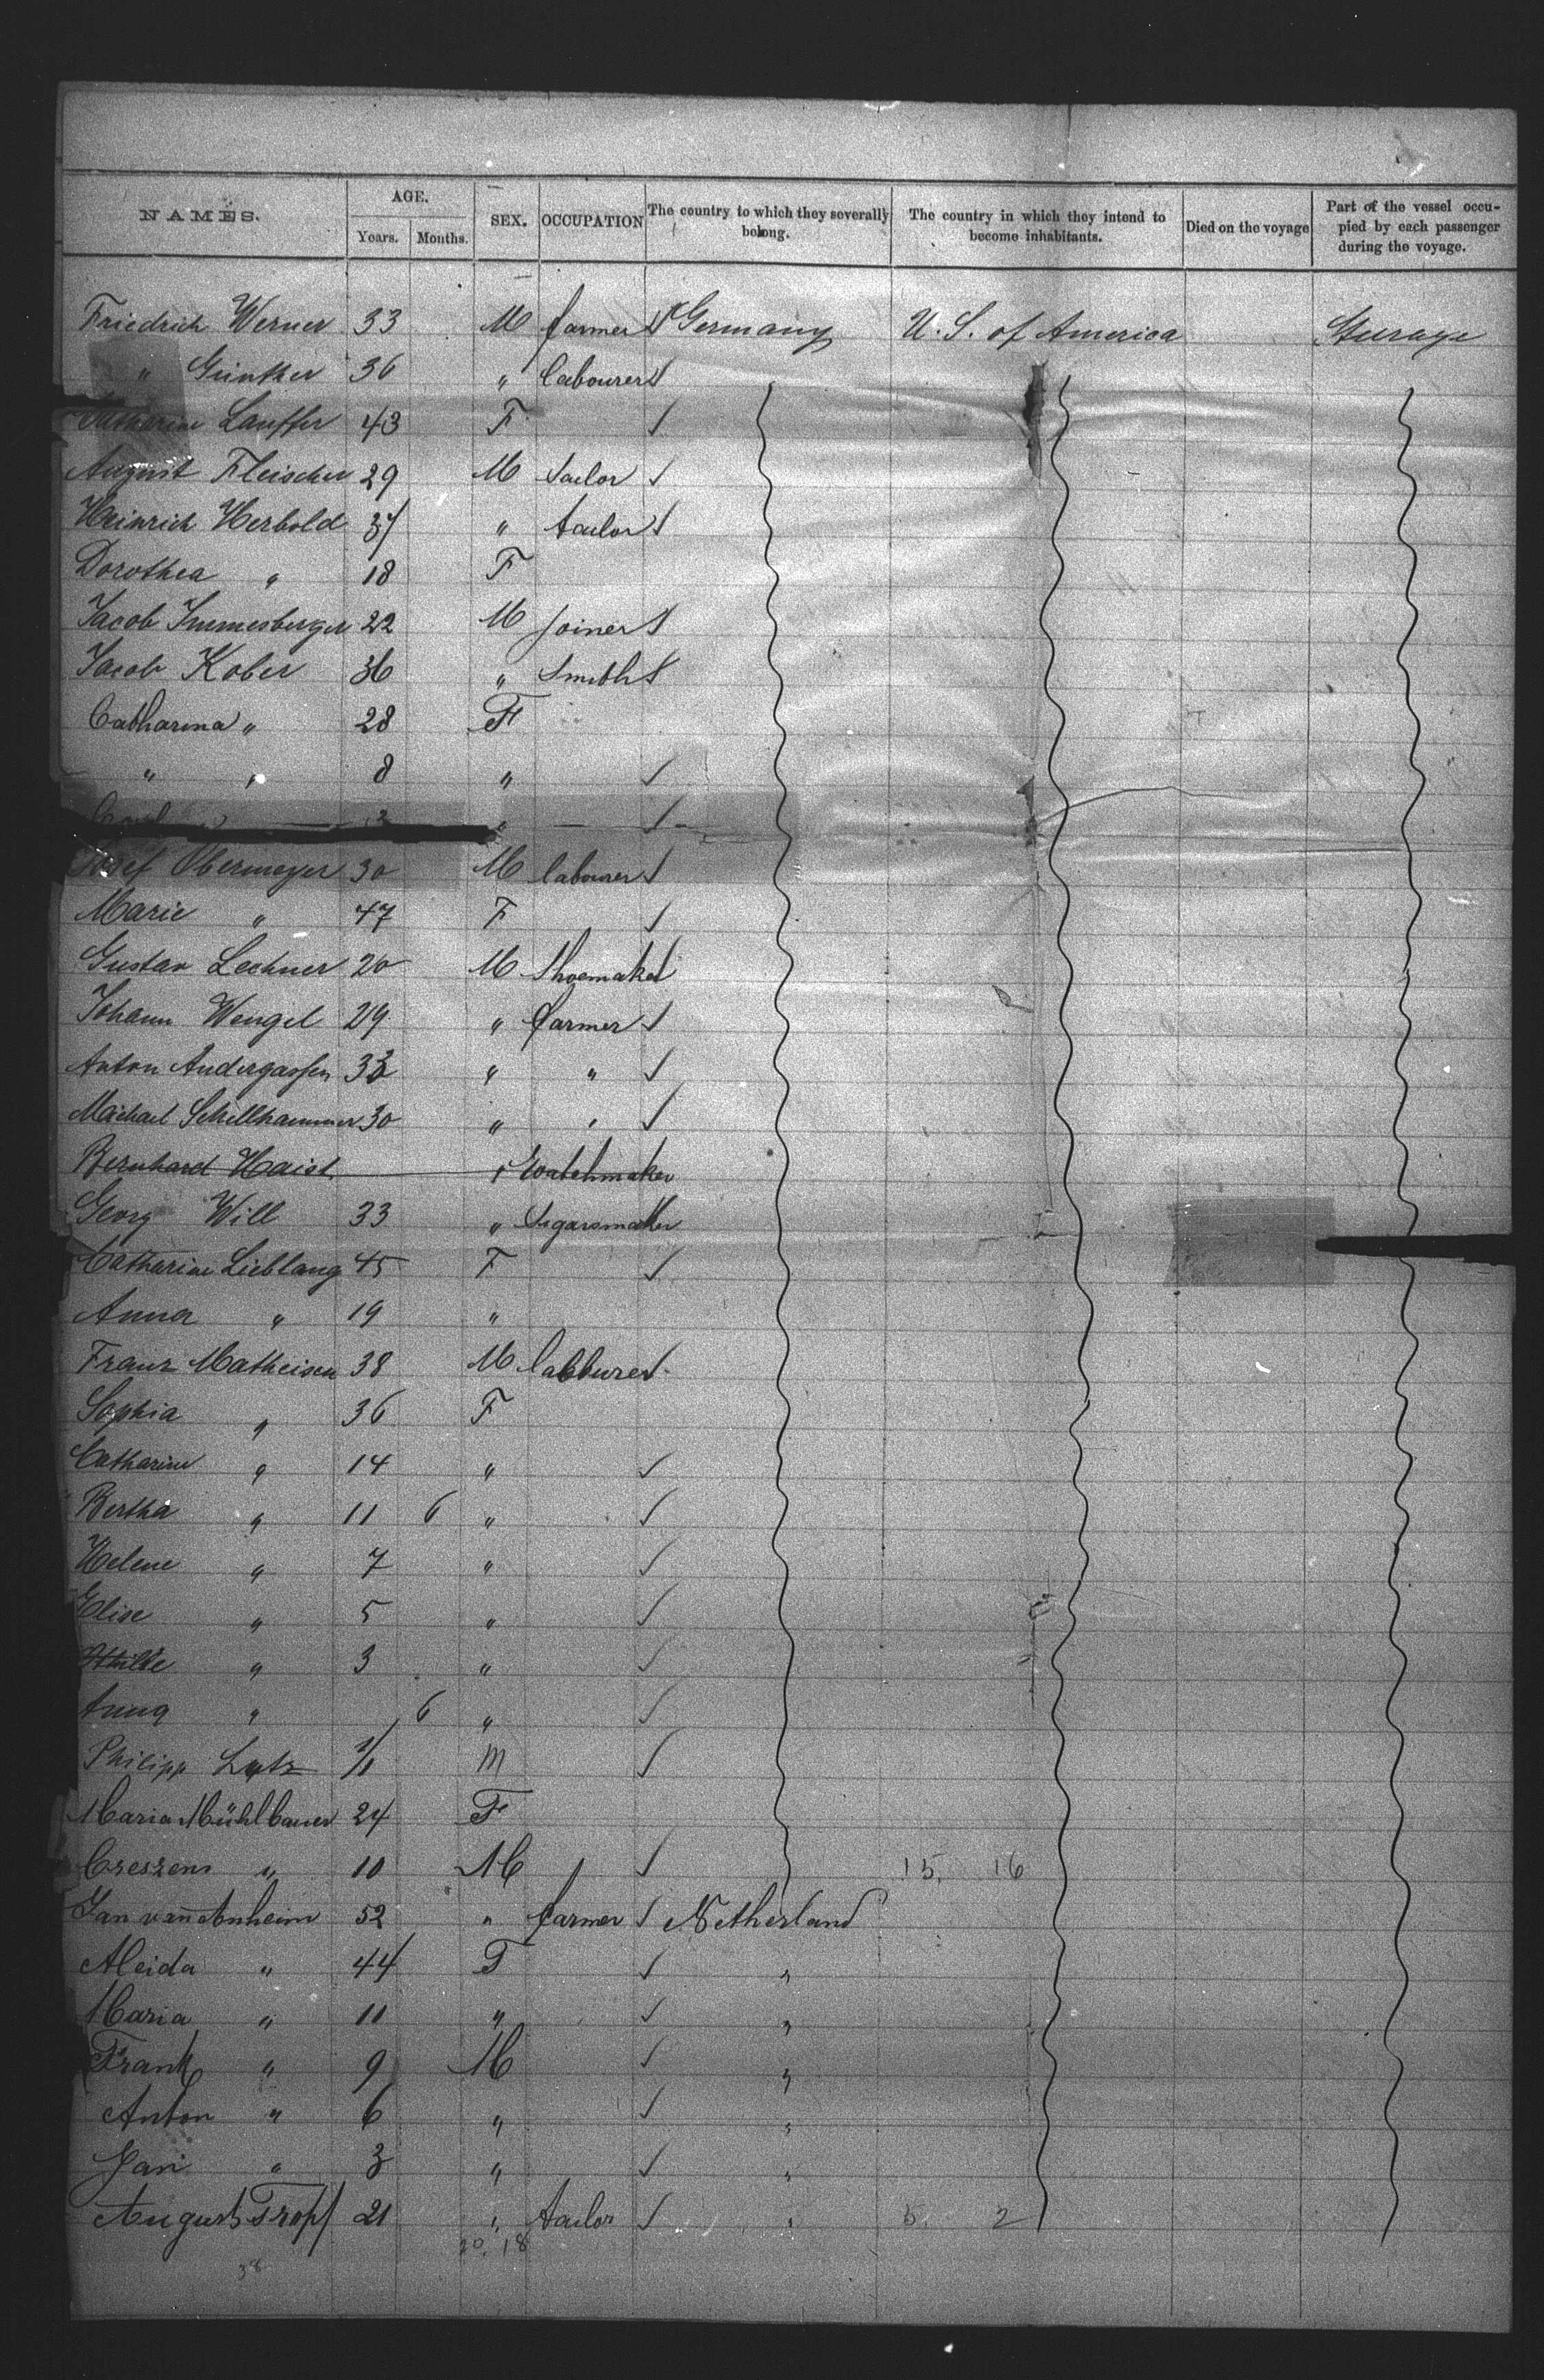 NAMES. AGE. Years. Months. SEX. OCCUPATION The country to which they severally belong. The country in which they intend to become inhabitants. Died on the voyage Part of the vessel occupied by each passenger during the voyage.
Friedrich Werner 33 M farmer Germany U. S. of America Steerage
" Günther 36 " labourer
Catharine Lauffer 43 F
August Fleischer 29 M Sailor
Heinrich Herbold 37 " tailor
Dorothea " 18 F
Jacob Immesberger 22 M joiner
Jacob Kober 36 " Smith
Catharina " 28 F
" " 8 "
"
Josef Obermeyer 30 M labourer
Marie " 47 F
Gustav Lechner 20 M Shoemaker
Johann Wengel 29 " farmer
Anton Andergassen 33 " "
Michael Schellhammer 30 " "
Bernhard Haist " Watchmaker
Georg Will 33 " Sigarsmaker
Catharine Lieblang 45 F
Anna " 19 "
Franz Matheisen 38 M labourer
Sophia " 36 F
Catharine " 14 "
Bertha " 11 6 "
Helene " 7 "
Elise " 5 "
" 3 "
Anna " 6 "
Philipp Lutz M
Maria Mühlbauer 24 F
Creszens " 10 M 15. 16
Jan van Anheim 52 " farmer Netherland
Aleida " 44 F "
Maria " 11 " "
Frank " 9 M "
Anton " 6 " "
Jan " 3 " "
August Tropf 21 " tailor " 5. 2
20. 18
38